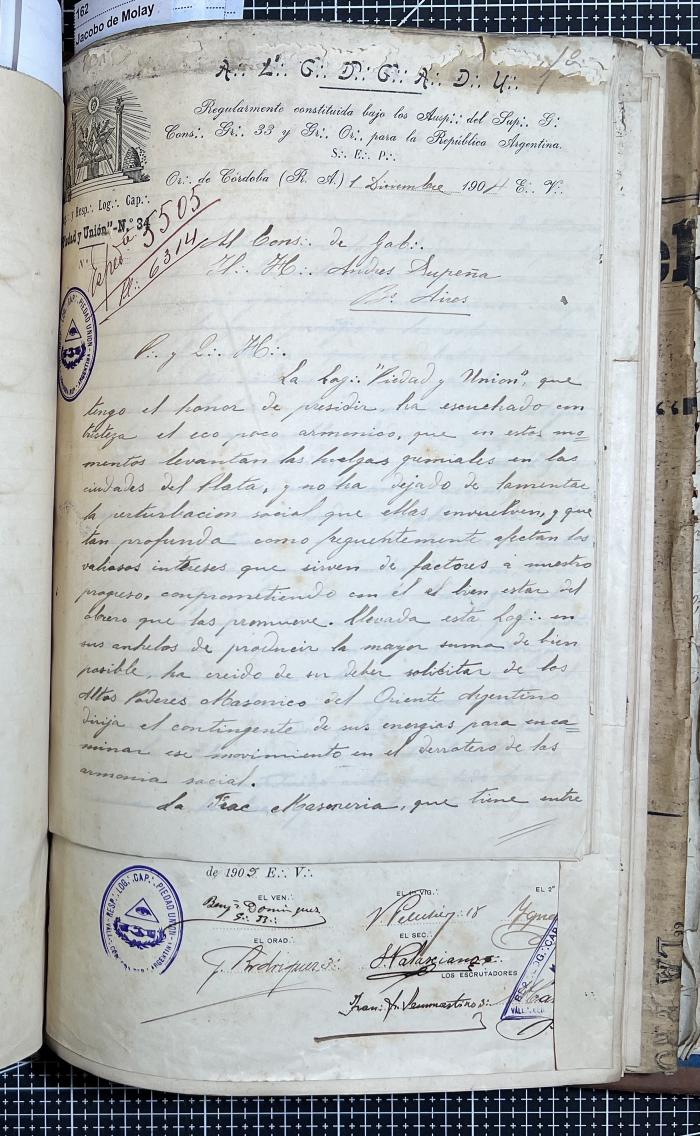 162
Jacobo de Molay
A∴ L∴ G∴ D∴ G∴ A∴ D∴ U∴
Regularmente constituida bajo los Ausp∴ del Sup∴ G∴
Cons∴ Gr∴ 33 y Gr∴ Or∴ para la República Argentina.
S∴ E∴ P∴
Or∴ de Córdoba (R. A.) 1 Diciembre 1904 E∴ V∴
y Resp∴ Log∴ Cap∴
"Piedad y Unión"-N.º 34
N.º
5505
6314
Al Cons∴ de Gab∴
H∴ H∴ Andres
Bs Aires
P∴ y Q∴ H∴
La Log∴ "Piedad y Union", que
tengo el honor de presidir, ha escuchado con
tristeza el eco poco armonico, que en estos mo=
mentos levantan las huelgas gremiales en las
ciudades del Plata, y no ha dejado de lamentar
la perturbacion social que ellas envuelven, y que
tan profunda como frequentemente afectan los
valiosos intereses que sirven de factores á nuestro
progreso, comprometiendo con él el bien estar del
obrero que las promueve. Llevada esta Log∴ en
sus anhelos de producir la mayor suma de bien
posible, ha creido de su deber solicitar de los
Altos Poderes Masonico del Oriente Argentino
dirija el contingente de sus energias para enca=
minar ese movimiento en el derrotero de las
armonia social.
La Frac Masoneria, que tiene entre
de 1902 E∴ V∴
EL VEN∴
Benj. Dominguez
EL 1er VIG∴
EL 2º
EL ORAD∴
J. Rodriguez 3∴
EL SEC∴
LOS ESCRUTADORES
RESP∴ LOG∴ CAP∴ PIEDAD UNION